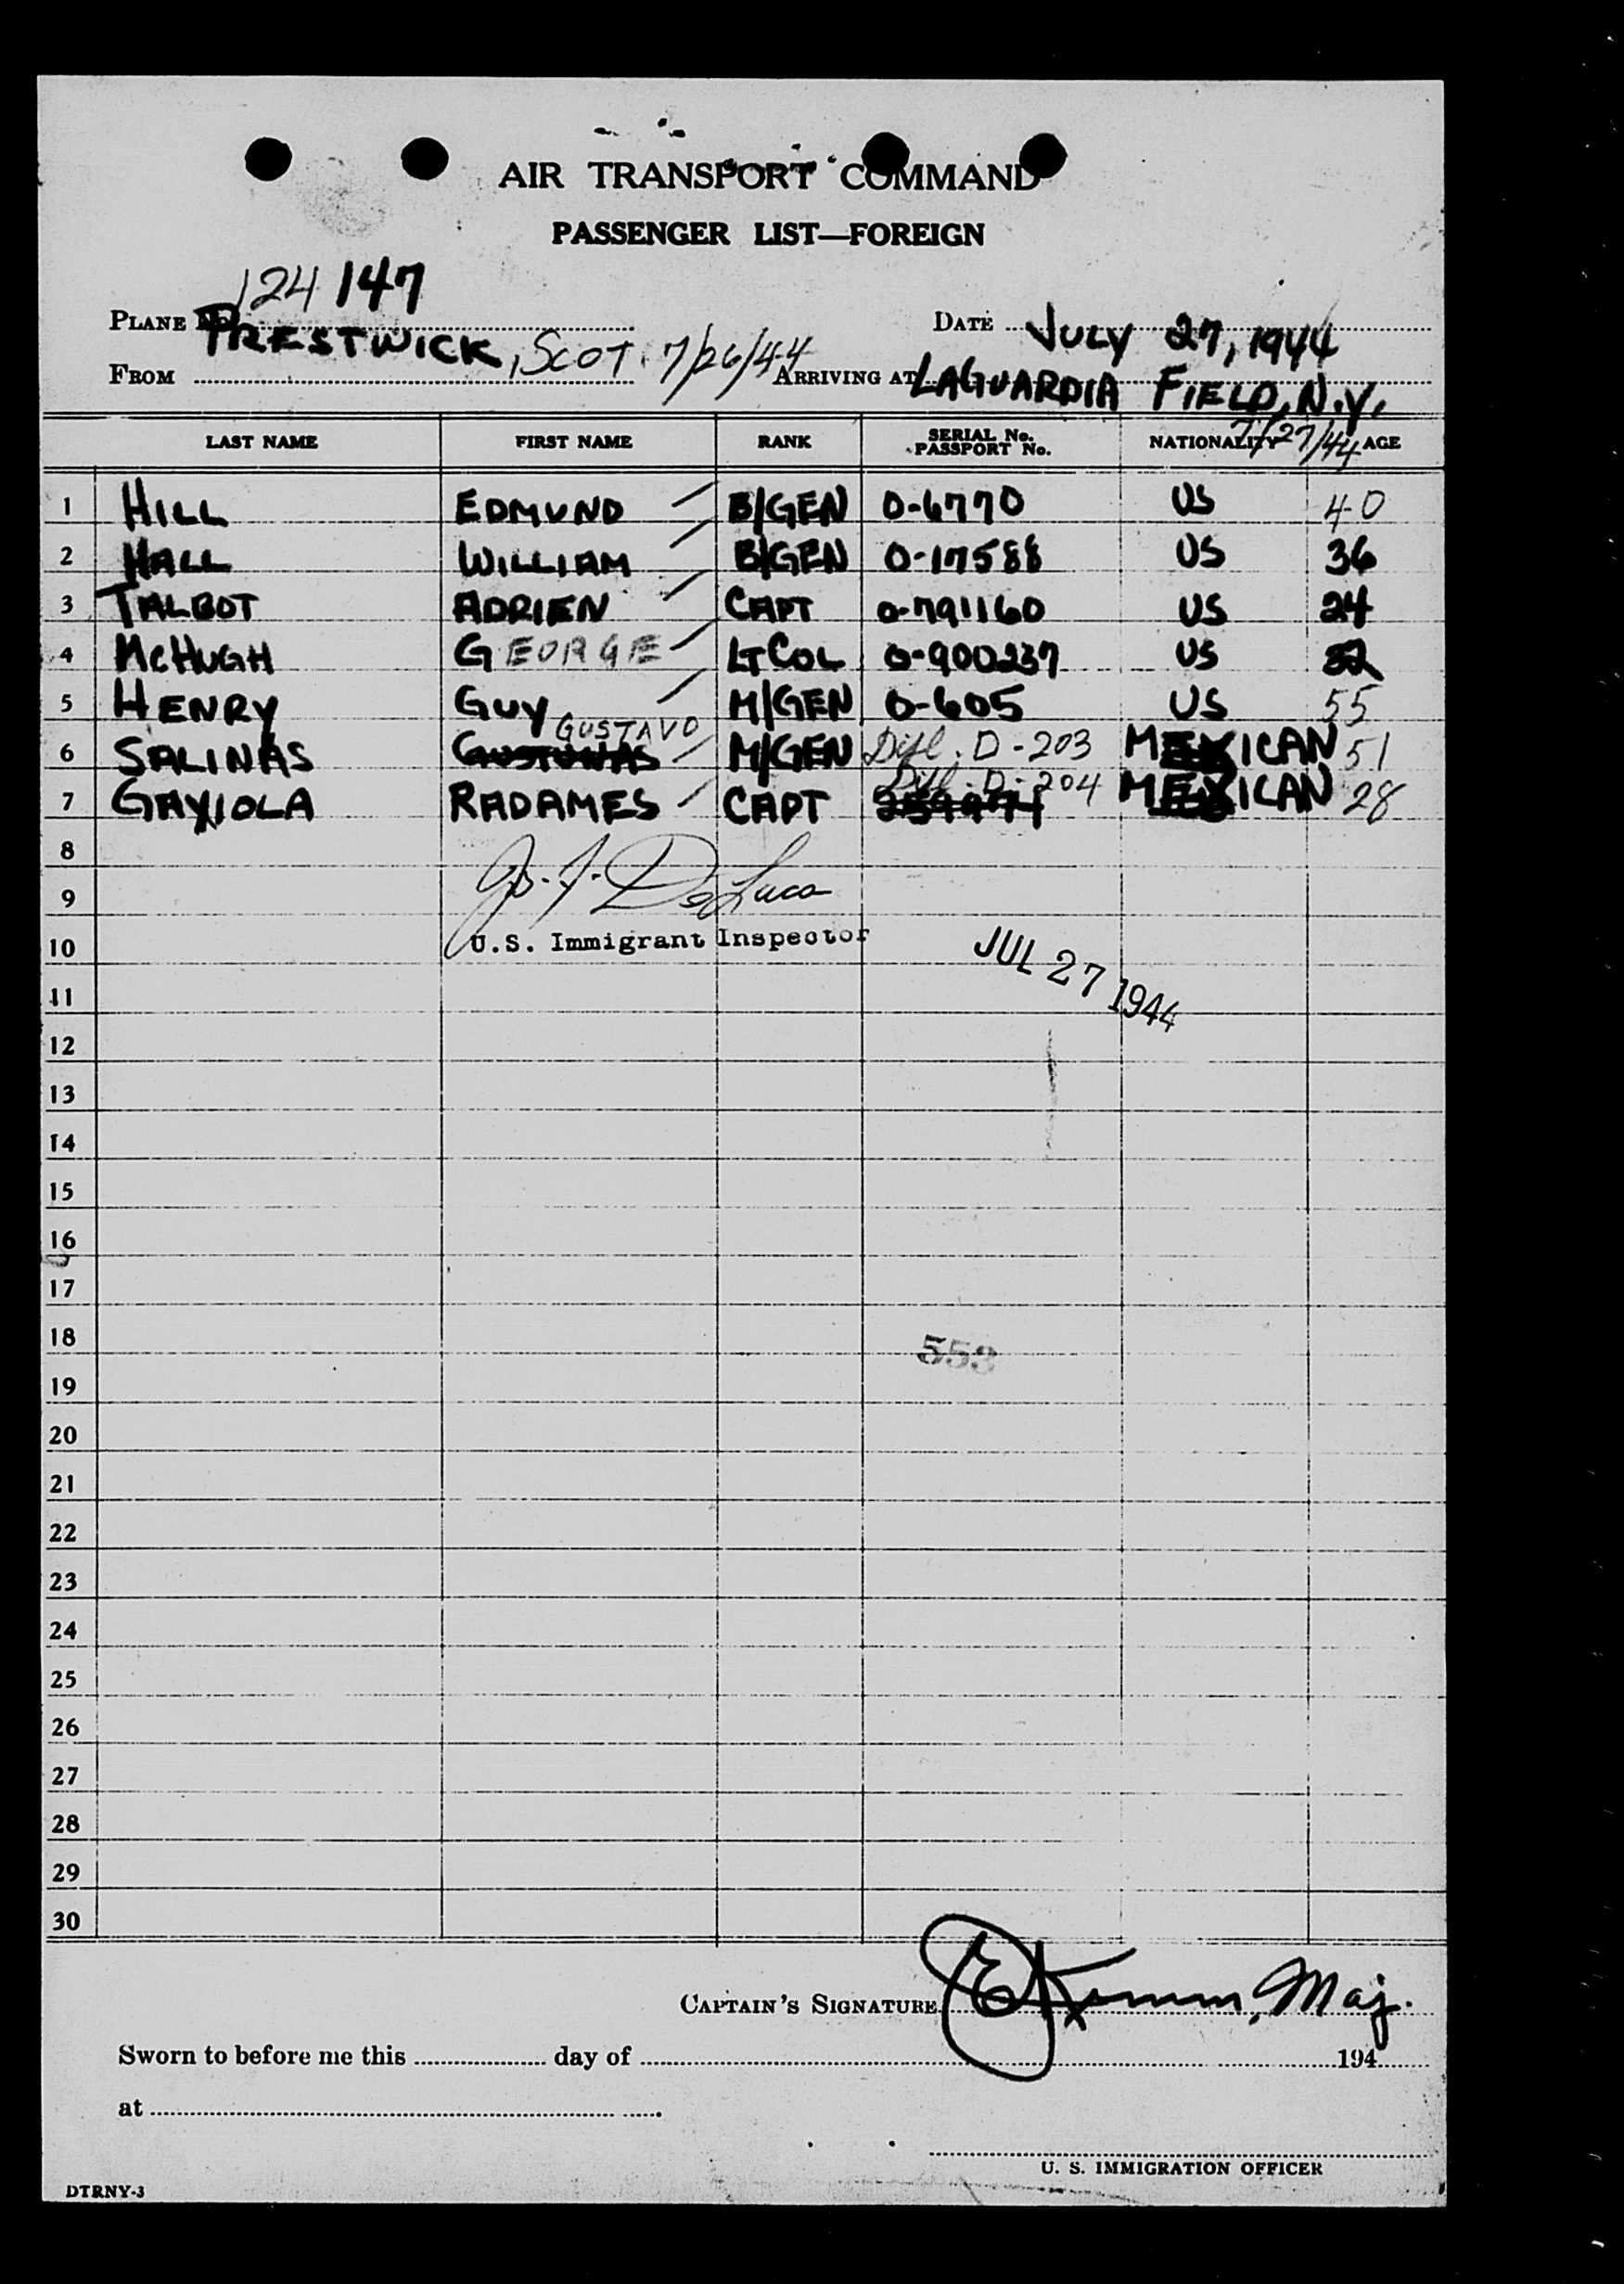 AIR TRANSPORT COMMAND
PASSENGER LIST—FOREIGN
124 147
PLANE No. DATE JULY 27, 1944
FROM PRESTWICK, SCOT. 7/26/44 ARRIVING AT LAGUARDIA FIELD, N.Y.
7/27/44
LAST NAME FIRST NAME RANK SERIAL No. PASSPORT No. NATIONALITY AGE
1 HILL EDMUND B/GEN O-6770 US 40
2 HALL WILLIAM B/GEN O-17588 US 36
3 TALBOT ADRIEN CAPT O-791160 US 24
4 McHUGH GEORGE LT COL O-900237 US
5 HENRY GUY M/GEN O-605 US 55
6 SALINAS GUSTAVO M/GEN Dipl. D-203 MEXICAN 51
7 GAXIOLA RADAMES CAPT Dipl. D-204 MEXICAN 28
8
9 Jos. F. DeLuca
10 U.S. Immigrant Inspector
JUL 27 1944
11
12
13
14
15
16
17
18 553
19
20
21
22
23
24
25
26
27
28
29
30
CAPTAIN'S SIGNATURE Maj.
Sworn to before me this day of 194
at
U. S. IMMIGRATION OFFICER
DTRNY-3